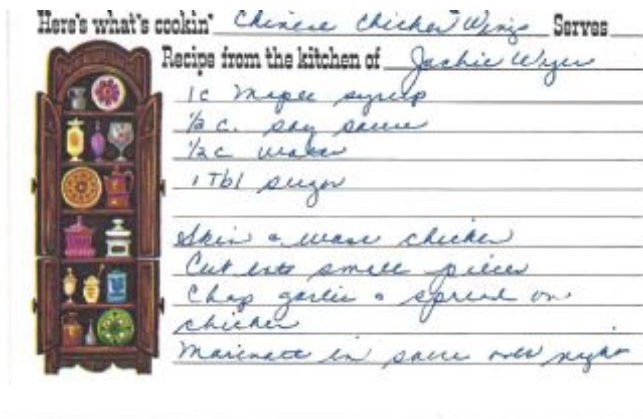 Here's what's cookin' Chinese Chicken Wings Serves
Recipe from the kitchen of Jackie Wyer
1c Maple syrup
½ c. soy sauce
½ c water
1 Tbl sugar
Skin & wash chicken
Cut into small pieces
Chop garlic & spread on
chicken
Marinate in sauce over night